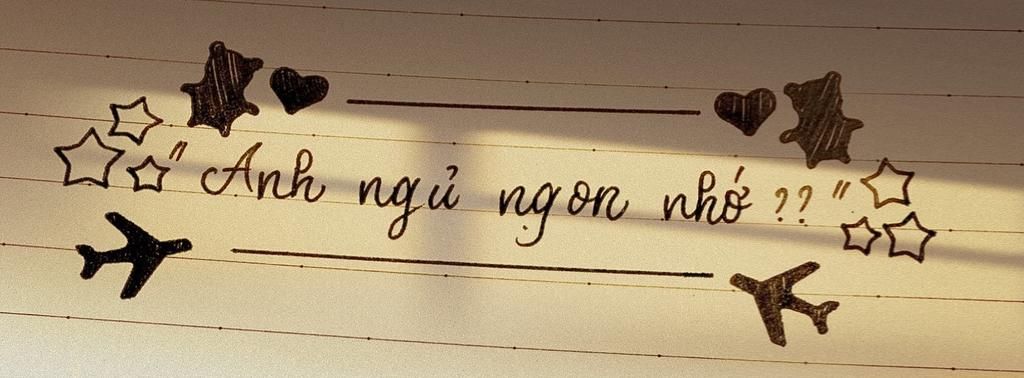 "Anh ngủ ngon nhớ ??"